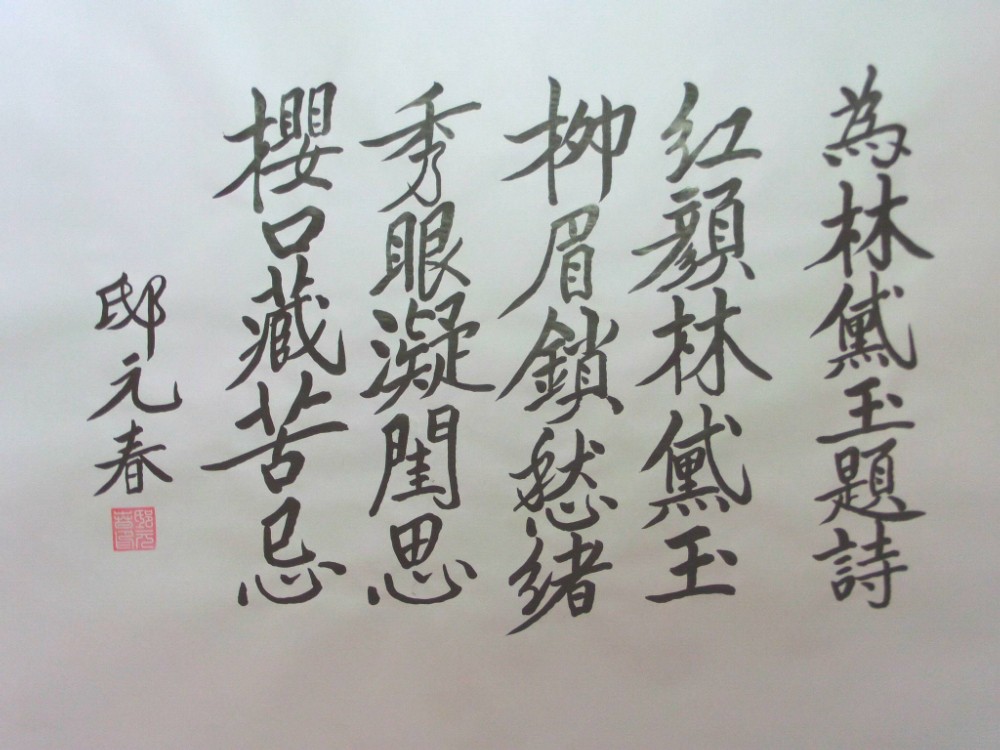 為林黛玉題詩
红顔林黛玉
柳眉鎖愁绪
秀眼凝閨思
櫻口藏苦忌
邸元春